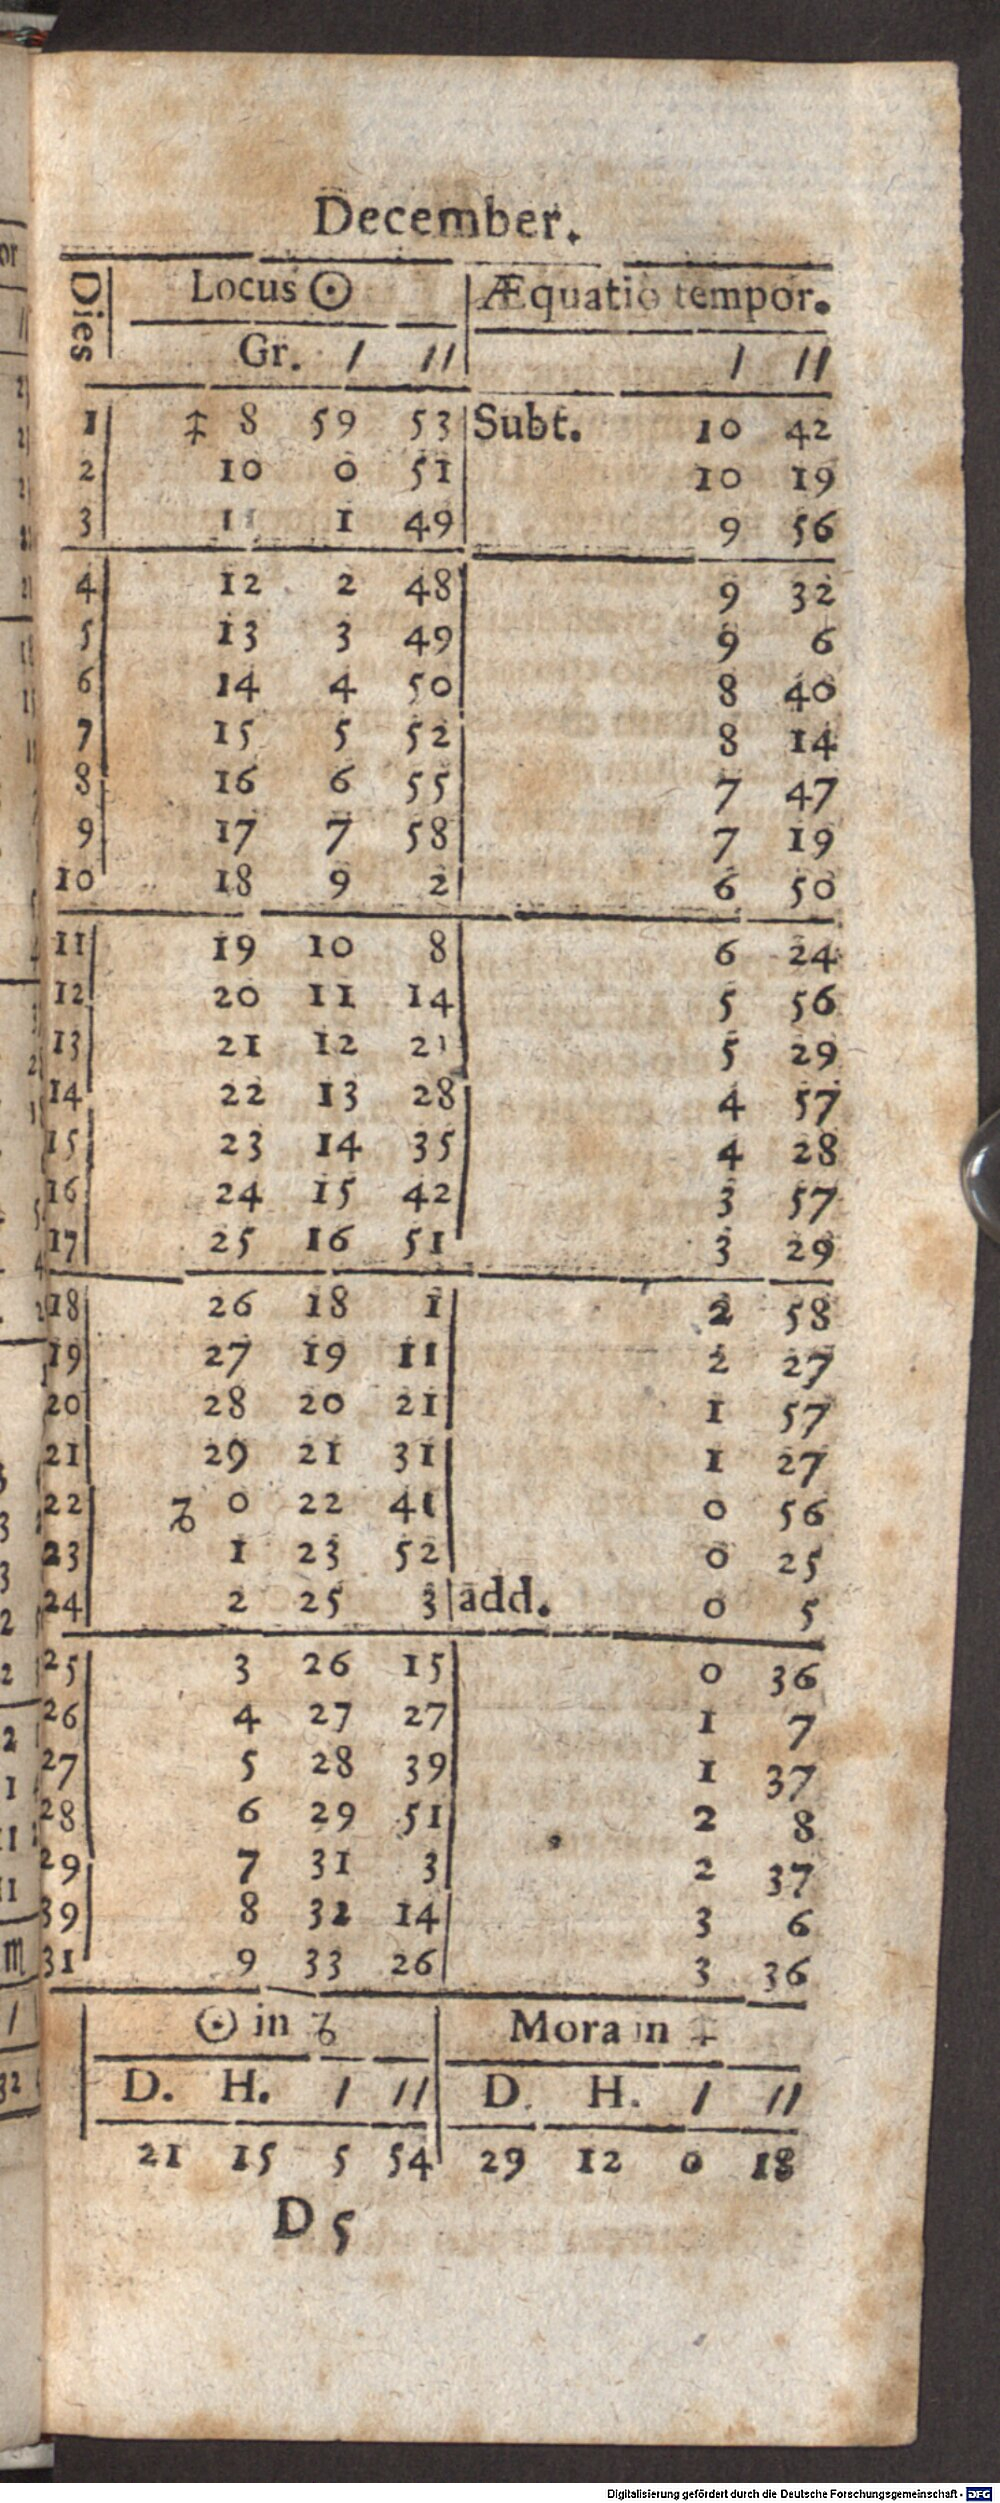 December.
Dies Locus ☉ Æquatio tempor.
Gr. / // / //
1 ♐ 8 59 53 Subt. 10 42
2 10 0 51 10 19
3 11 1 49 9 56
4 12 2 48 9 32
5 13 3 49 9 6
6 14 4 50 8 40
7 15 5 52 8 14
8 16 6 55 7 47
9 17 7 58 7 19
10 18 9 2 6 50
11 19 10 8 6 24
12 20 11 14 5 56
13 21 12 21 5 29
14 22 13 28 4 57
15 23 14 35 4 28
16 24 15 42 3 57
17 25 16 51 3 29
18 26 18 1 2 58
19 27 19 11 2 27
20 28 20 21 1 57
21 29 21 31 1 27
22 ♑ 0 22 41 0 56
23 1 23 52 0 25
24 2 25 3 add. 0 5
25 3 26 15 0 36
26 4 27 27 1 7
27 5 28 39 1 37
28 6 29 51 2 8
29 7 31 3 2 37
39 8 32 14 3 6
31 9 33 26 3 36
☉ in ♑ Mora in ♐
D. H. / // D. H. / //
21 15 5 54 29 12 0 18
D 5
Digitalisierung gefördert durch die Deutsche Forschungsgemeinschaft - DFG